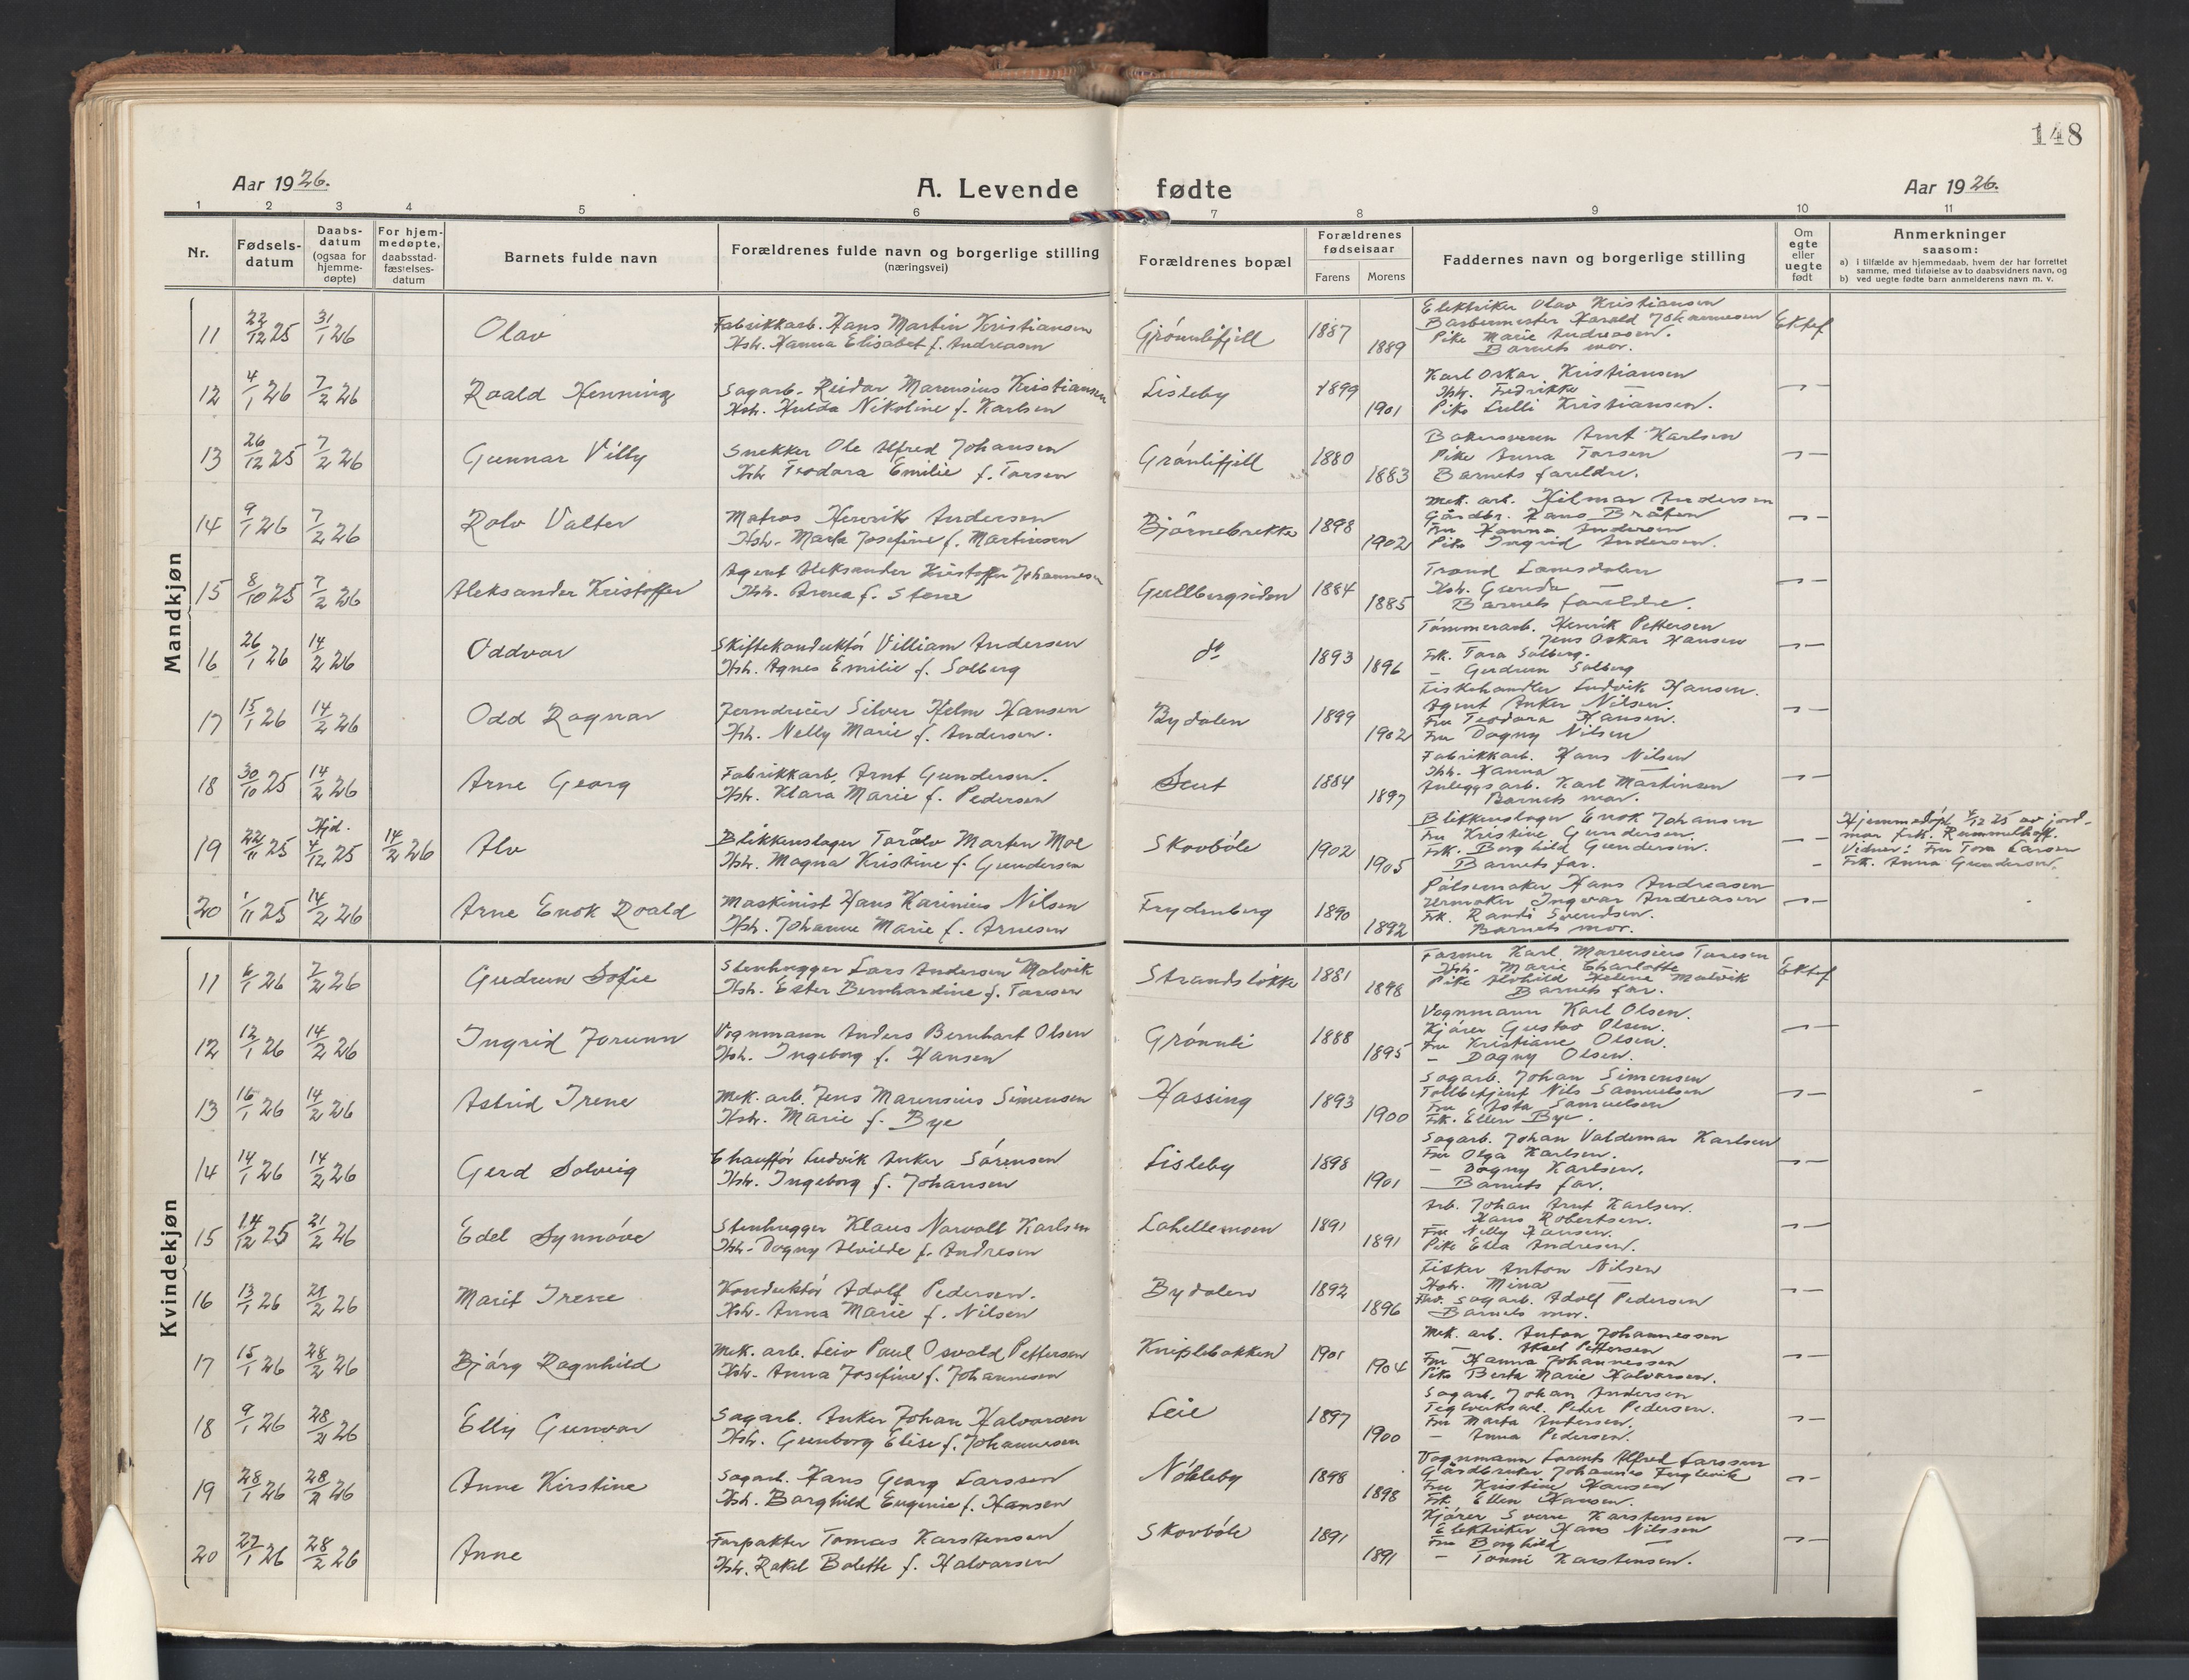 148
Aar 1926.
A. Levende fødte
Aar 1926.
1 2 3 4 5 6 7 8 9 10 11
Nr.
Fødsels-
datum
Daabs-
datum
(ogsaa for
hjemme-
døpte)
For hjem-
medøpte,
daabsstad-
fæstelses-
datum
Barnets fulde navn
Forældrenes fulde navn og borgerlige stilling
(næringsvei)
Forældrenes bopæl
Forældrenes
fødselsaar
Farens Morens
Faddernes navn og borgerlige stilling
Om
egte
eller
uegte
født
Anmerkninger
saasom:
a) i tilfælde av hjemmedaab, hvem der har forrettet
samme, med tilføielse av to daabsvidners navn, og
b) ved uegte fødte barn anmelderens navn m. v.
Mandkjøn
11 22/12 25 31/1 26 Olav
Fabrikkarb. Hans Martin Kristiansen
Hstr. Hanna Elisabet f. Andreasen
1887 1889
Elektriker Olav Kristiansen
Barbermester Harald Johannesen
Pike Marie Andreasen.
Barnets mor.
Ektef
12 4/1 26 7/2 26 Roald Henning
Sagarb. Reidar Marensius Kristiansen
Hstr. Hulda Nikoline f. Karlsen
Lisleby 1899 1901
Karl Oskar Kristiansen
Hstr. Fredrikke —
Pike Lulli Kristiansen.
13 26/12 25 7/2 26 Gunnar Villy
Snekker Ole Alfred Johansen
Hstr Teodora Emilie f. Torsen
Grønlifjell 1880 1883
Bakersvenn Arnt Karlsen
Pike Anna Torsen
Barnets foreldre.
14 9/1 26 7/2 26 Rolv Valter
Matros Henrik Andersen
Hstr. Marta Josefine f. Martinsen
Bjørnebrekke 1898 1902
Mek. arb. Hilmar Andersen
Gårdbr. Hans Bråten
Fru Hanna Andersen
Pike Ingrid Andersen.
15 8/10 25 7/2 26 Aleksander Kristoffer
Agent Aleksander Kristoffer Johannesen
Hstr. Anna f. Stene
Gullbergsiden 1884 1885
Trond
Hstr. Gunda —
Barnets foreldre.
16 26/1 26 14/2 26 Oddvar
Skiftekonduktør Villiam Andersen
Hstr. Agnes Emilie f. Solberg
do 1893 1896
Tømmerarb. Henrik Pettersen
— Jens Oskar Hansen
Frk. Tora Solberg.
— Gudrun Solberg
17 15/1 26 14/2 26 Odd Ragnar
Jerndreier Silver Helm Hansen
Hstr. Nelly Marie f. Andersen.
Bydalen 1899 1902
Fiskehandler Ludvik Hansen.
Agent Anker Nilsen.
Fru Teodora Hansen.
Fru Dagny Nilsen
18 30/10 25 14/2 26 Arne Georg
Fabrikkarb. Arnt Gundersen.
Hstr. Klara Marie f. Pedersen
1884 1897
Fabrikkarb. Hans Nilsen
Hstr. Hanna —
Anleggsarb. Karl Martinsen
Barnets mor.
19 22/11 25 Hjd. 4/12 25 14/2 26 Alv
Blikkenslager Torolv Marten Moe
Hstr. Magna Kristine f. Gundersen
Skovbøle 1902 1905
Blikkenslager Enok Johansen
Fru Kristine Gundersen.
Frk. Borghild Gundersen.
Barnets far.
Hjemmedøpt 4/12 25 av jord-
mor frk. Rummelhoff.
Vidner: Fru Tora Larsen
Frk. Anna Gundersen.
20 1/11 25 14/2 26 Arne Enok Roald
Maskinist Hans Karinius Nilsen
Hstr. Johanne Marie f. Arnesen
Frydenberg 1890 1892
Pølsemaker Hans Andreasen
Urmaker Ingvar Andreasen
Frk. Randi Svendsen.
Barnets mor.
Kvindekjøn
11 6/1 26 7/2 26 Gudrun Sofie
Stenhugger Lars Andersen Malvik
Hstr. Ester Bernhardine f. Toresen
Strandsløkke 1881 1898
Farmer Karl Marensius Toresen
Hstr. Marie Charlotte —
Pike Alvhild Helene Malvik
Barnets far.
Ektef
12 12/1 26 14/2 26 Ingrid Jorunn
Vognmann Anders Bernhart Olsen
Hstr. Ingeborg f. Hansen
Grønli 1888 1895
Vognmann Karl Olsen.
Kjører Gustav Olsen.
Fru Kristiane Olsen.
— Dagny Olsen.
13 16/1 26 14/2 26 Astrid Irene
Mek. arb. Jens Marensius Simensen
Hstr. Marie f. Bye
Hassing 1893 1900
Sagarb. Johan Simensen
Tollbetjent Nils Samuelsen
Fru Asta Samuelsen
Frk. Ellen Bye.
14 14/1 26 14/2 26 Gerd Solveig
Chauffør Ludvik Anker Sørensen
Hstr. Ingeborg f. Johansen
Lisleby 1898 1901
Sagarb. Johan Valdemar Karlsen
Fru Olga Karlsen.
— Dagny Karlsen.
Barnets far.
15 14/12 25 21/2 26 Edel Synnøve
Stenhugger Klaus Narvall Karlsen
Hstr. Dagny Alvilde f. Andresen
Lahellemoen 1891 1891
Arb. Johan Arnt Karlsen.
Hans Robertsen.
Fru Nelly Hansen.
Pike Ella Andresen.
16 13/1 26 21/2 26 Marit Irene
Konduktør Adolf Pedersen.
Hstr. Anna Marie f. Nilsen
Bydalen 1892 1896
Fisker Anton Nilsen
Hstr. Mina —
Sagarb. Adolf Pedersen
Barnets mor.
17 15/1 26 28/2 26 Bjørg Ragnhild
Mek. arb. Leiv Paul Osvald Pettersen
Hstr. Anna Josefine f. Johannesen
Kniplebakken 1901 1904
Mek. arb. Anton Johannessen
— Aksel Pettersen
Fru Hanna Johannessen
Pike Berta Marie Halvorsen.
18 9/1 26 28/2 26 Elly Gunvor
Sagarb. Anker Johan Halvorsen
Hstr. Gunborg Elise f. Johannesen
Leie 1897 1900
Sagarb. Johan Andersen
Teglverksarb. Peter Pedersen.
Fru Marta Andersen.
— Anna Pedersen.
19 28/1 26 28/2 26 Anne Kirstine
Sagarb. Hans Georg Larssen
Hstr. Borghild Eugenie f. Hansen
Nøkleby 1898 1898
Vognmann Lorents Alfred Larssen
Gårdbruker Johannes Fuglevik
Fru Kristine Hansen
Frk. Ellen Hansen.
20 27/1 26 28/2 26 Anne
Forpakter Tomas Karstensen
Hstr. Rakel Bolette f. Halvorsen
Skovbøle 1891 1891
Kjører Sverre Karstensen
Elektriker Hans Nilssen
Fru Borghild —
— Tonni Karstensen.